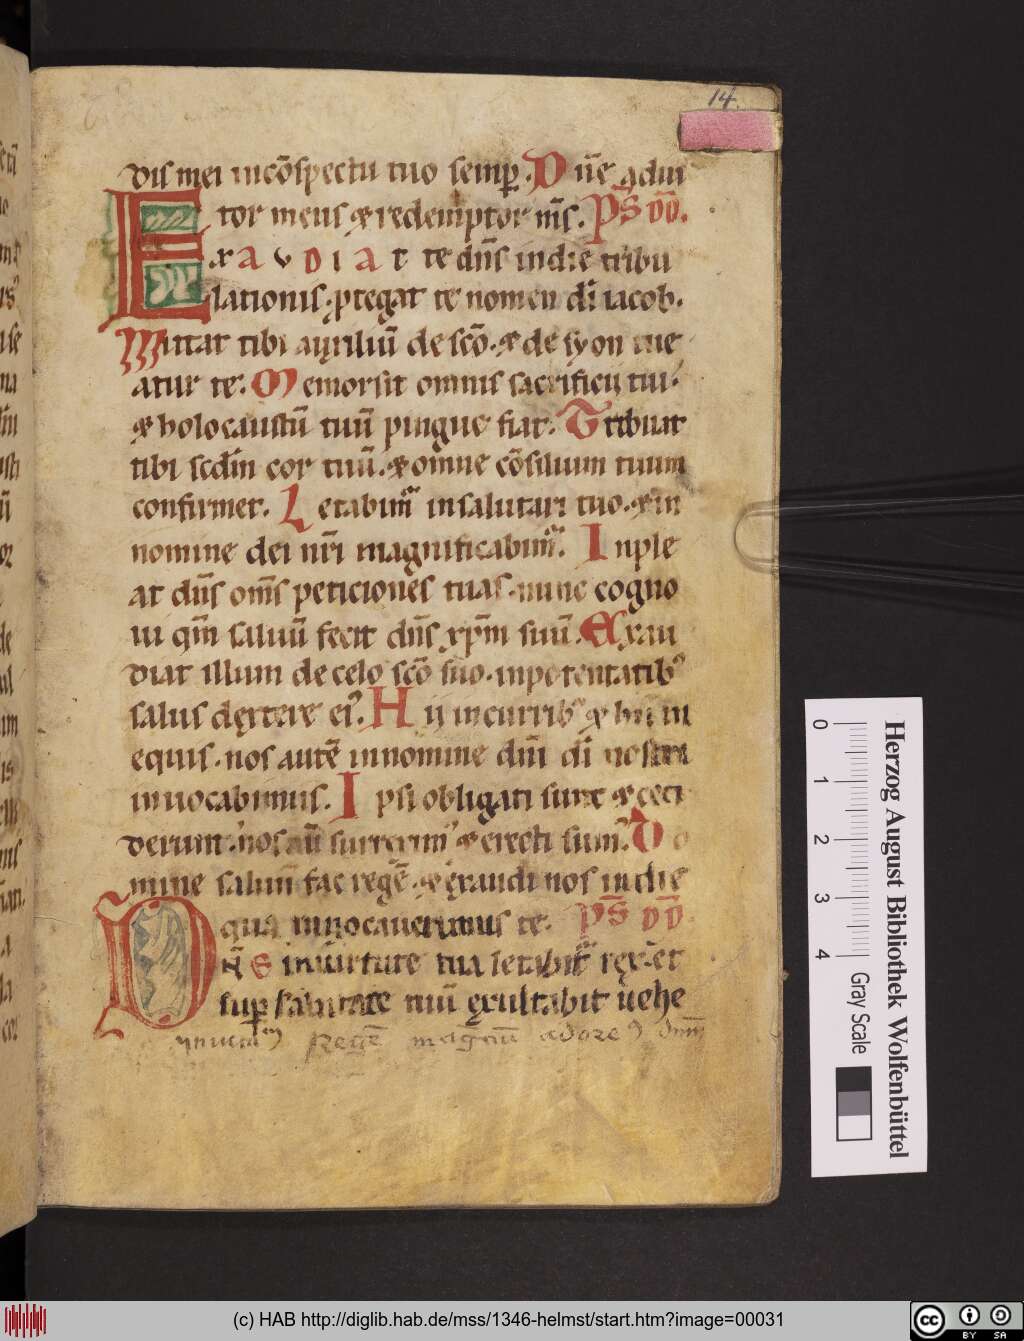 14
dis mei incōspectu tuo semp̱. Dn̄e adiu
tor meus & redemptor m̄s. PS̄ DD̄.
EXAVDIAT te dn̄s indie tribu
lationis. ꝓtegat te nomen dī iacob.
Mittat tibi auxiliū de scō. & de syon tue
atur te. Memor sit omnis sacrificii tui.
& holocaustū tuū pingue fiat. Tribuat
tibi scdm̄ cor tuū. & omne cōsilium tuum
confirmet. Letabim̄ insalutari tuo. & in
nomine dei nr̄i magnificabim̄. Inple
at dn̄s om̄s peticiones tuas. nunc cogno
ui qm̄ saluū fecit dn̄s xp̄m suū. Exau
diat illum de celo scō suo. inpotentatib᾽
salus dextere ei᾽. Hii incurrib᾽ & hii in
equis. nos autē innomine dn̄i dī nostri
inuocabimus. Ipsi obligati sunt & ceci
derunt. nos aū surrexim᾽ & erecti sum᾽. Do
mine saluū fac regē. & exaudi nos indie
qua inuocauerimus te. PS̄ DD̄
DN̄E inuirtute tua letabit᾽ rex. et
sup̱ salutare tuū exultabit uehe
regē magnū adore᾽ dnm̄
Herzog August Bibliothek Wolfenbüttel
0 1 2 3 4 Gray Scale
(c) HAB http://diglib.hab.de/mss/1346-helmst/start.htm?image=00031
cc BY SA